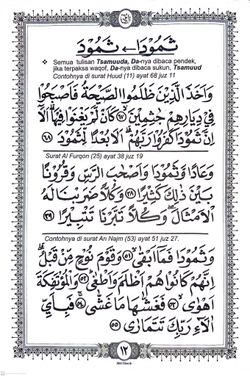 ثَمُوْدَا ← ثَمُوْدَ
Semua tulisan Tsamuuda, Da-nya dibaca pendek,
jika terpaksa waqof, Da-nya dibaca sukun, Tsamuud
Contohnya di surat Huud (11) ayat 68 juz 11
وَاَخَذَ الَّذِيْنَ ظَلَمُوا الصَّيْحَةُ فَاَصْبَحُوْا
فِيْ دِيَارِهِمْ جٰثِمِيْنَ ٦٧ كَاَنْ لَّمْ يَغْنَوْا فِيْهَا اَلَآ
اِنَّ ثَمُوْدَا۟ كَفَرُوْا رَبَّهُمْ اَلَا بُعْدًا لِّثَمُوْدَ ٦٨
Surat Al Furqon (25) ayat 38 juz 19
وَعَادًا وَّثَمُوْدَا۟ وَاَصْحٰبَ الرَّسِّ وَقُرُوْنًا ۢ
بَيْنَ ذٰلِكَ كَثِيْرًا ٣٨ وَكُلًّا ضَرَبْنَا لَهُ
الْاَمْثَالَ وَكُلًّا تَبَّرْنَا تَتْبِيْرًا ٣٩
Contohnya di surat An Najm (53) ayat 51 juz 27.
وَثَمُوْدَا۟ فَمَآ اَبْقٰى ٥١ وَقَوْمَ نُوْحٍ مِّنْ قَبْلُ
اِنَّهُمْ كَانُوْا هُمْ اَظْلَمَ وَاَطْغٰى ٥٢ وَالْمُؤْتَفِكَةَ
اَهْوٰى ٥٣ فَغَشّٰىهَا مَا غَشّٰى ٥٤ فَبِاَيِّ
اٰلَاۤءِ رَبِّكَ تَتَمَارٰى ٥٥
١٢